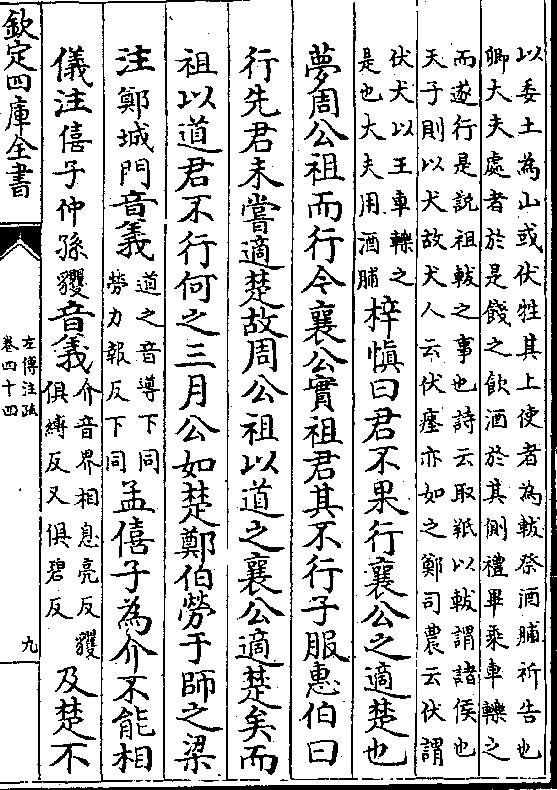 以委土為山或伏牲其上使者為軷祭酒脯祈告也
卿大夫處者於是餞之飲酒於其側禮畢乘車轢之
而遂行是説祖軷之事也詩云取羝以軷謂諸侯也
天子則以犬故犬人云伏瘞亦如之鄭司農云伏謂
伏犬以王車轢之
是也大夫用酒脯
梓慎曰君不果行襄公之適楚也
夢周公祖而行今襄公實祖君其不行子服惠伯曰
行先君未嘗適楚故周公祖以道之襄公適楚矣而
祖以道君不行何之三月公如楚鄭伯勞于師之梁
注鄭城門音義
道之音導下同
勞力報反下同
孟僖子為介不能相
儀注僖子仲孫貜音義
介音界相息亮反貜
俱縛反又俱碧反
及楚不
欽定四庫全書
左傳注疏
卷四十四
九